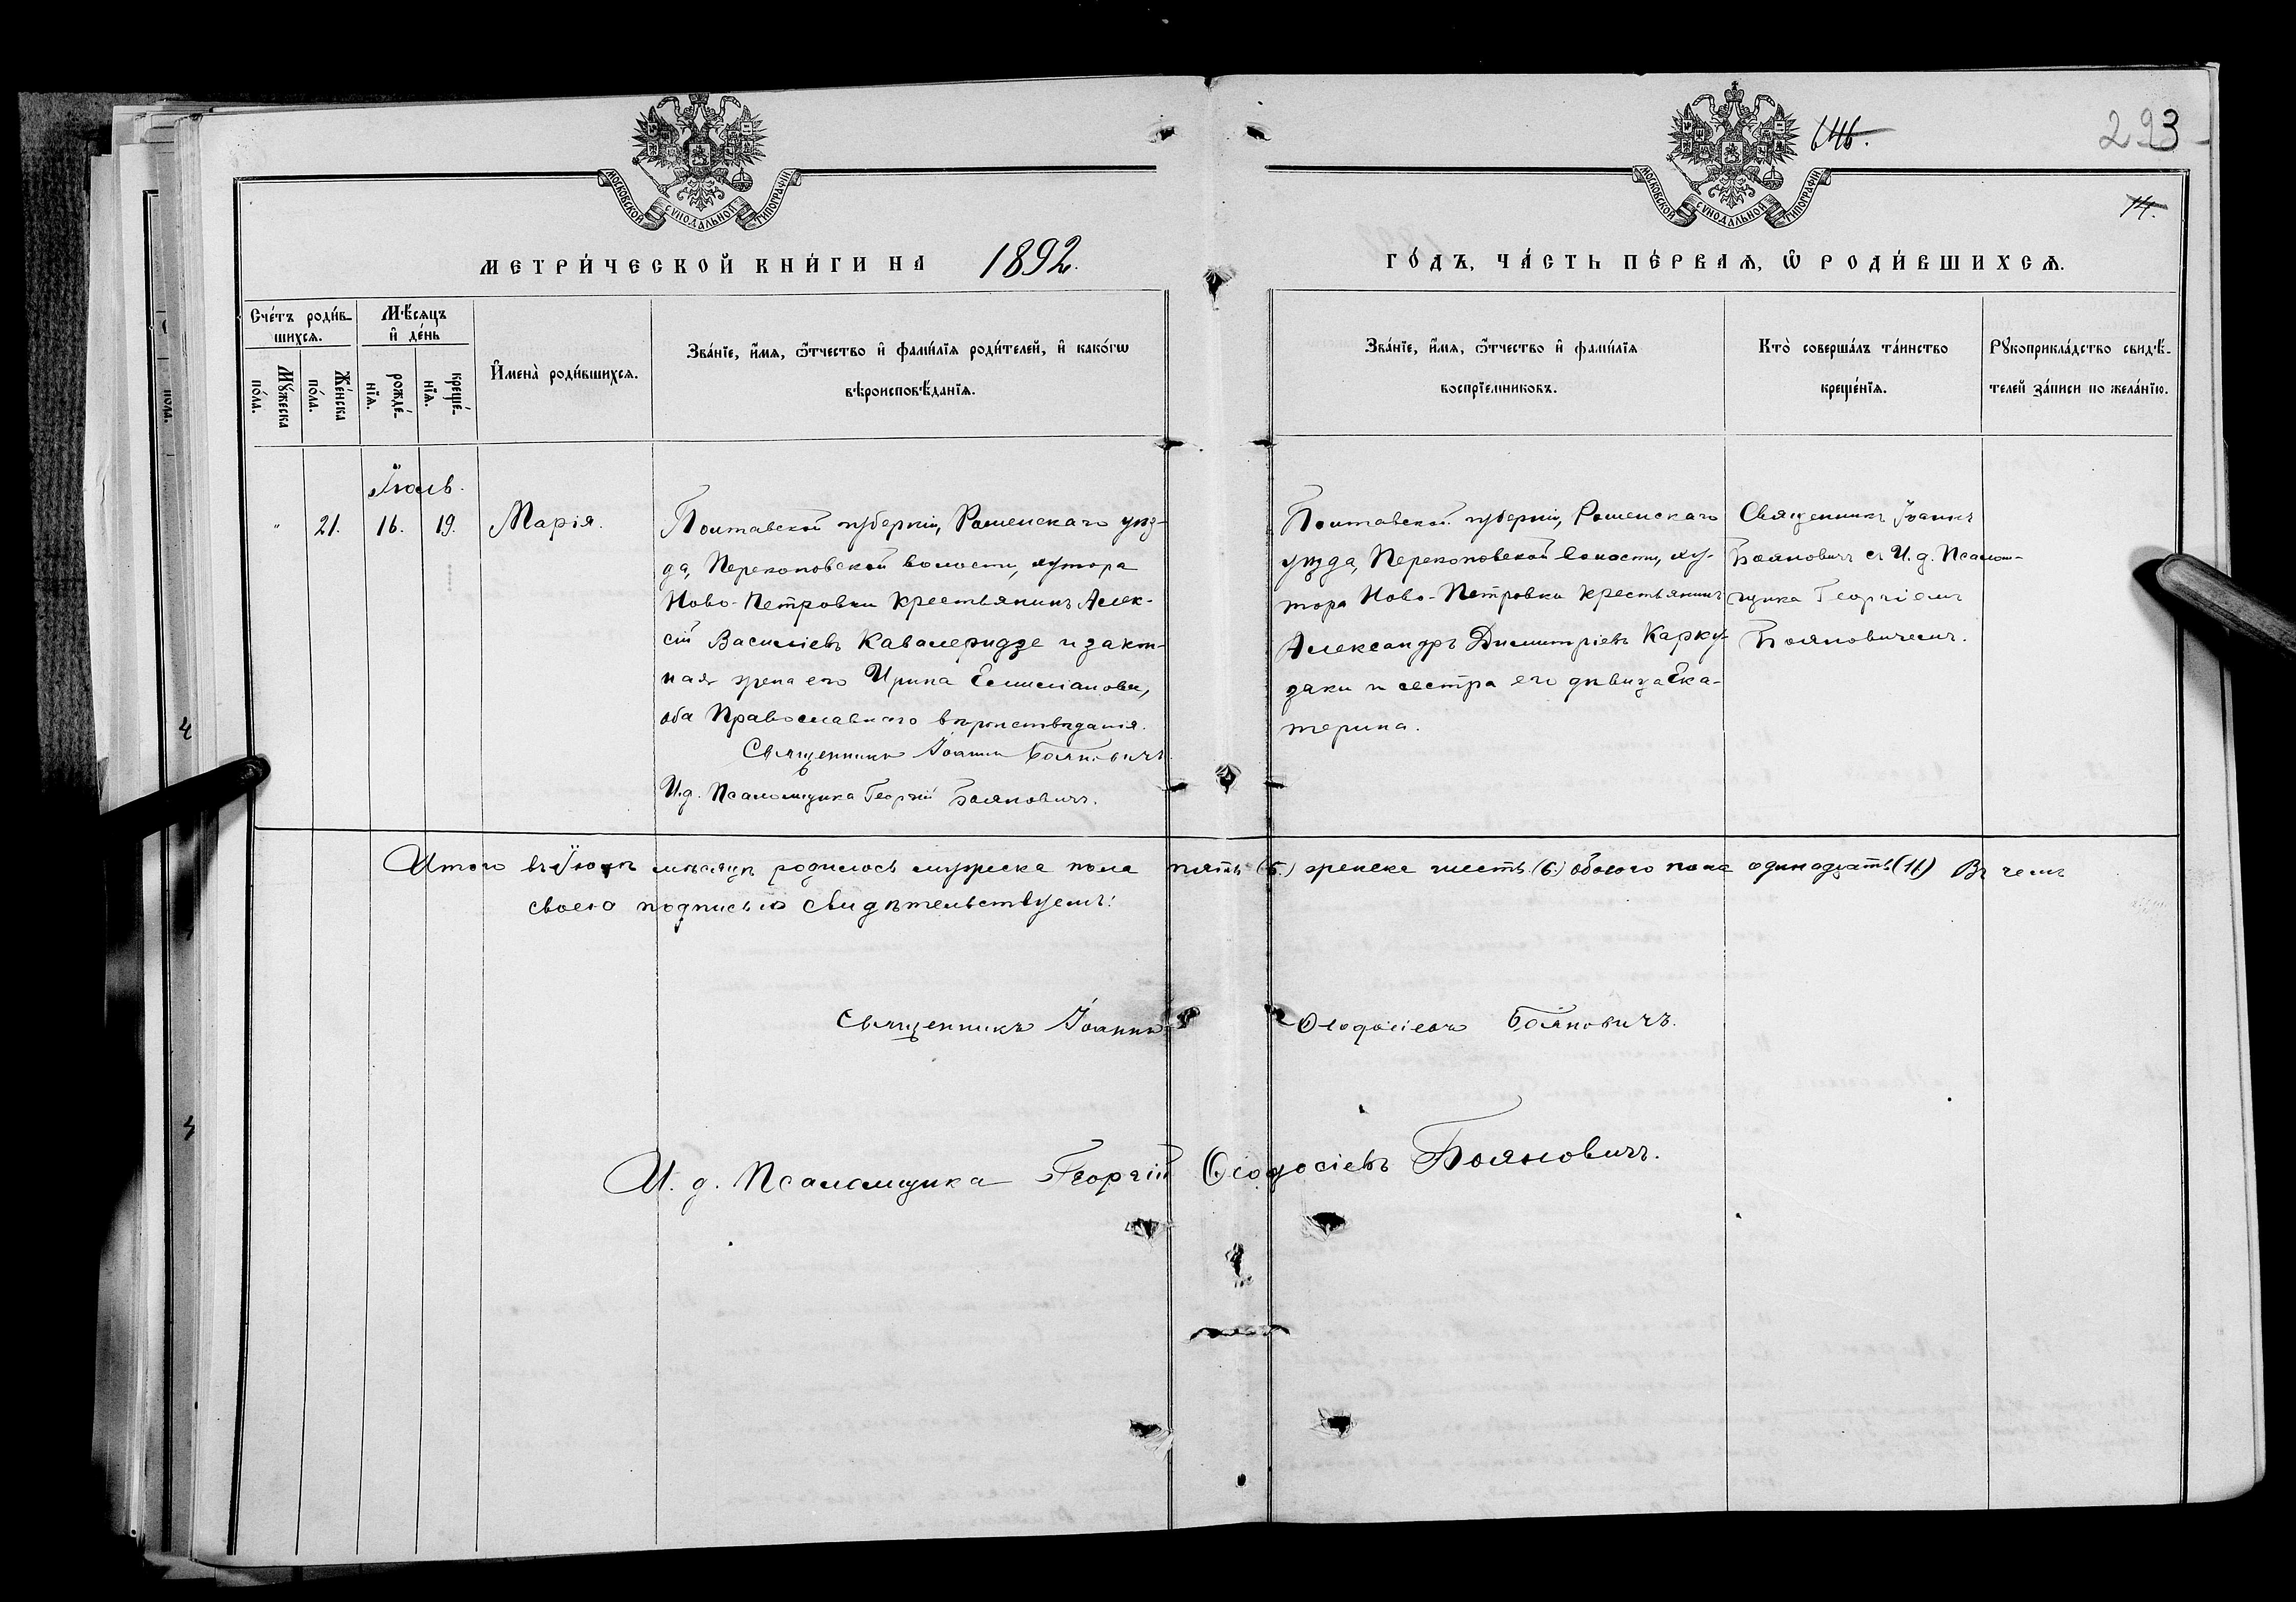 646.
293
14.
МОСКОВСКОЙ СѴНОДАЛЬНОЙ ТИПОГРАФІИ
МОСКОВСКОЙ СѴНОДАЛЬНОЙ ТИПОГРАФІИ
МЕТРИ́ЧЕСКОЙ КНИ́ГИ НА 1892.
ГО́ДЪ, ЧА́СТЬ ПЕ́РВАѦ, Ѿ РОДИ́ВШИХСѦ.
Сче́тъ роди́в-
шихсѧ.
Мꙋжеска
по́ла.
Же́нска
по́ла.
Мѣ́сѧцъ
и҆ де́нь
рожде́-
нїѧ.
креще́-
нїѧ.
И҆мена̀ роди́вшихсѧ.
Зва́нїе, и҆́мѧ, ѻ҆́тчество и҆ фами́лїѧ роди́телей, и҆ како́гѡ
вѣроисповѣ́данїѧ.
Зва́нїе, и҆́мѧ, ѻ҆́тчество и҆ фами́лїѧ
воспрїе́мниковъ.
Кто̀ соверша́лъ та́инство
креще́нїѧ.
Рꙋкоприкла́дство свидѣ́-
телей за́писи по жела́нїю.
Іюль.
" 21. 16. 19. Марія.
Полтавской губерніи, Роменскаго уѣз-
да, Перекоповской волости, хутора
Ново-Петровки крестьянинъ Алек-
сѣй Василіевъ Кавалеридзе и закон-
ная жена его Ирина Емиліанова,
оба Православнаго вѣроисповѣданія.
Священникъ Іоаннъ Бояновичъ
И.д. Псаломщика Георгій Бояновичъ.
Полтавской губерніи, Роменскаго
уѣзда, Перекоповской волости, ху-
тора Ново-Петровки крестьянинъ
Александръ Димитріевъ Карку-
даки и сестра его дѣвица Ека-
терина.
Священникъ Іоаннъ
Бояновичъ съ И.д. Псалом-
щика Георгіемъ
Бояновичемъ.
Итого въ Іюлѣ мѣсяцѣ родилось мужеска пола пять (5.) женска шесть (6.) обоего пола одинадцать (11) Въ чемъ
своею подписью свидѣтельствуемъ:
Священникъ Іоаннъ Ѳеодосіевъ Бояновичъ.
И. д. Псаломщика Георгій Ѳеодосіевъ Бояновичъ.